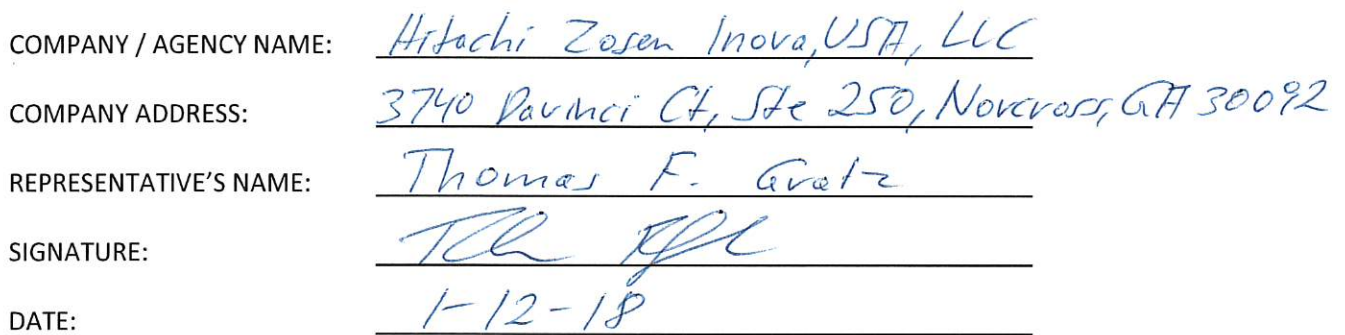 COMPANY / AGENCY NAME: Hitachi Zosen Inova, USA, LLC
COMPANY ADDRESS: 3740 Davinci Ct, Ste 250, Norcross, GA 30092
REPRESENTATIVE'S NAME: Thomas F. Gratz
SIGNATURE:
DATE: 1-12-18